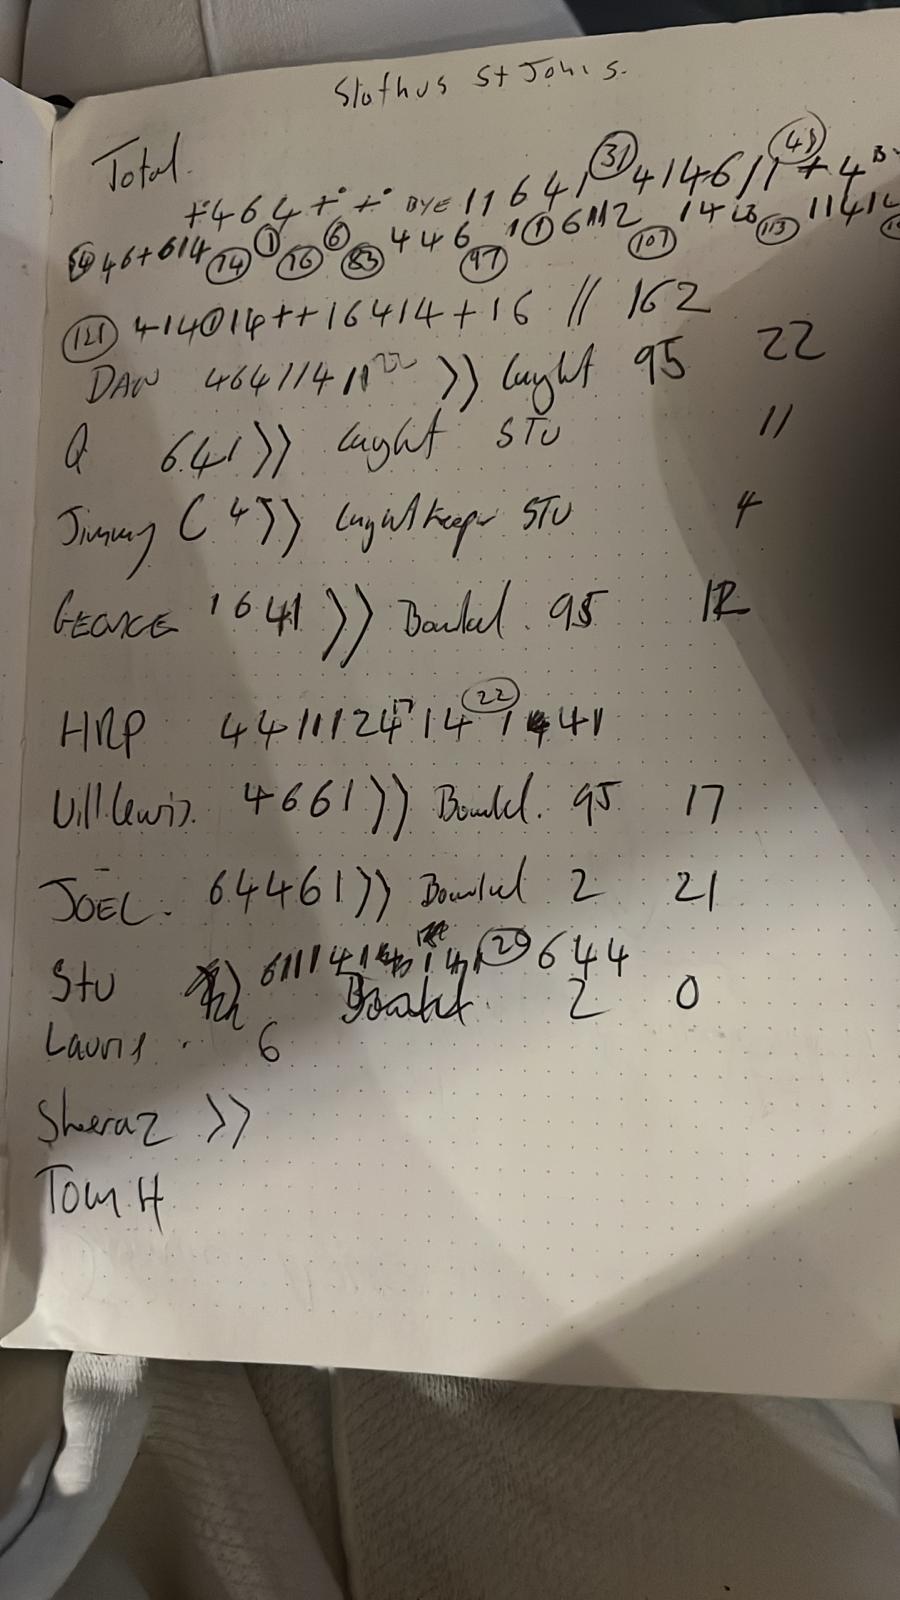 Slothus St Johns.
Total.
+ 4 6 4 + + BYE 1 1 6 4 1 (31) 4 1 4 6 1 1 (48) + 4
4 6 + 6 1 4 (74) (1) (76) (6) (83) 4 4 6 (97) 1 (1) 6 1 1 2 (107) 1 4 (113) 1 1 4 1
(121) 4 1 4 (1) 1 4 + + 1 6 4 1 4 + 1 6 // 162
DAN 4 6 4 1 1 4 1 1 22 >> Caught 95 22
Q 6 4 1 >> Caught STU 11
Jimmy ( 4 >> Caught Keeper STU 4
GEORGE 1 6 4 1 >> Bowled. 95 12
HRP 4 4 1 1 1 2 4 17 1 4 (22) 1 4 4 1
Will Lewis. 4 6 6 1 >> Bowled. 95 17
JOEL. 6 4 4 6 1 >> Bowled 2 21
Stu 6 1 1 1 4 1 1 4 1 (20) 6 4 4
Bowled. 2 0
Lauris 6
Sheeraz >>
Tom H